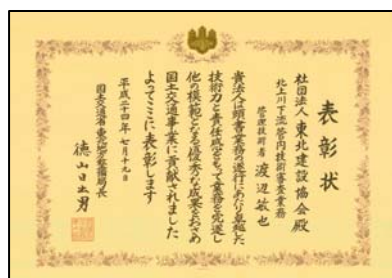 表彰状
社団法人 東北建設協会 殿
北上川下流管内技術審査業務
管理技術者 渡辺敏也
貴法人は頭書業務の遂行にあたり卓越した
技術力と責任感をもって業務を完遂し
他の模範となる優秀な成果をおさめ
国土交通事業に貢献されました
よってここに表彰します
平成二十四年七月十九日
国土交通省 東北地方整備局長
徳山日出男